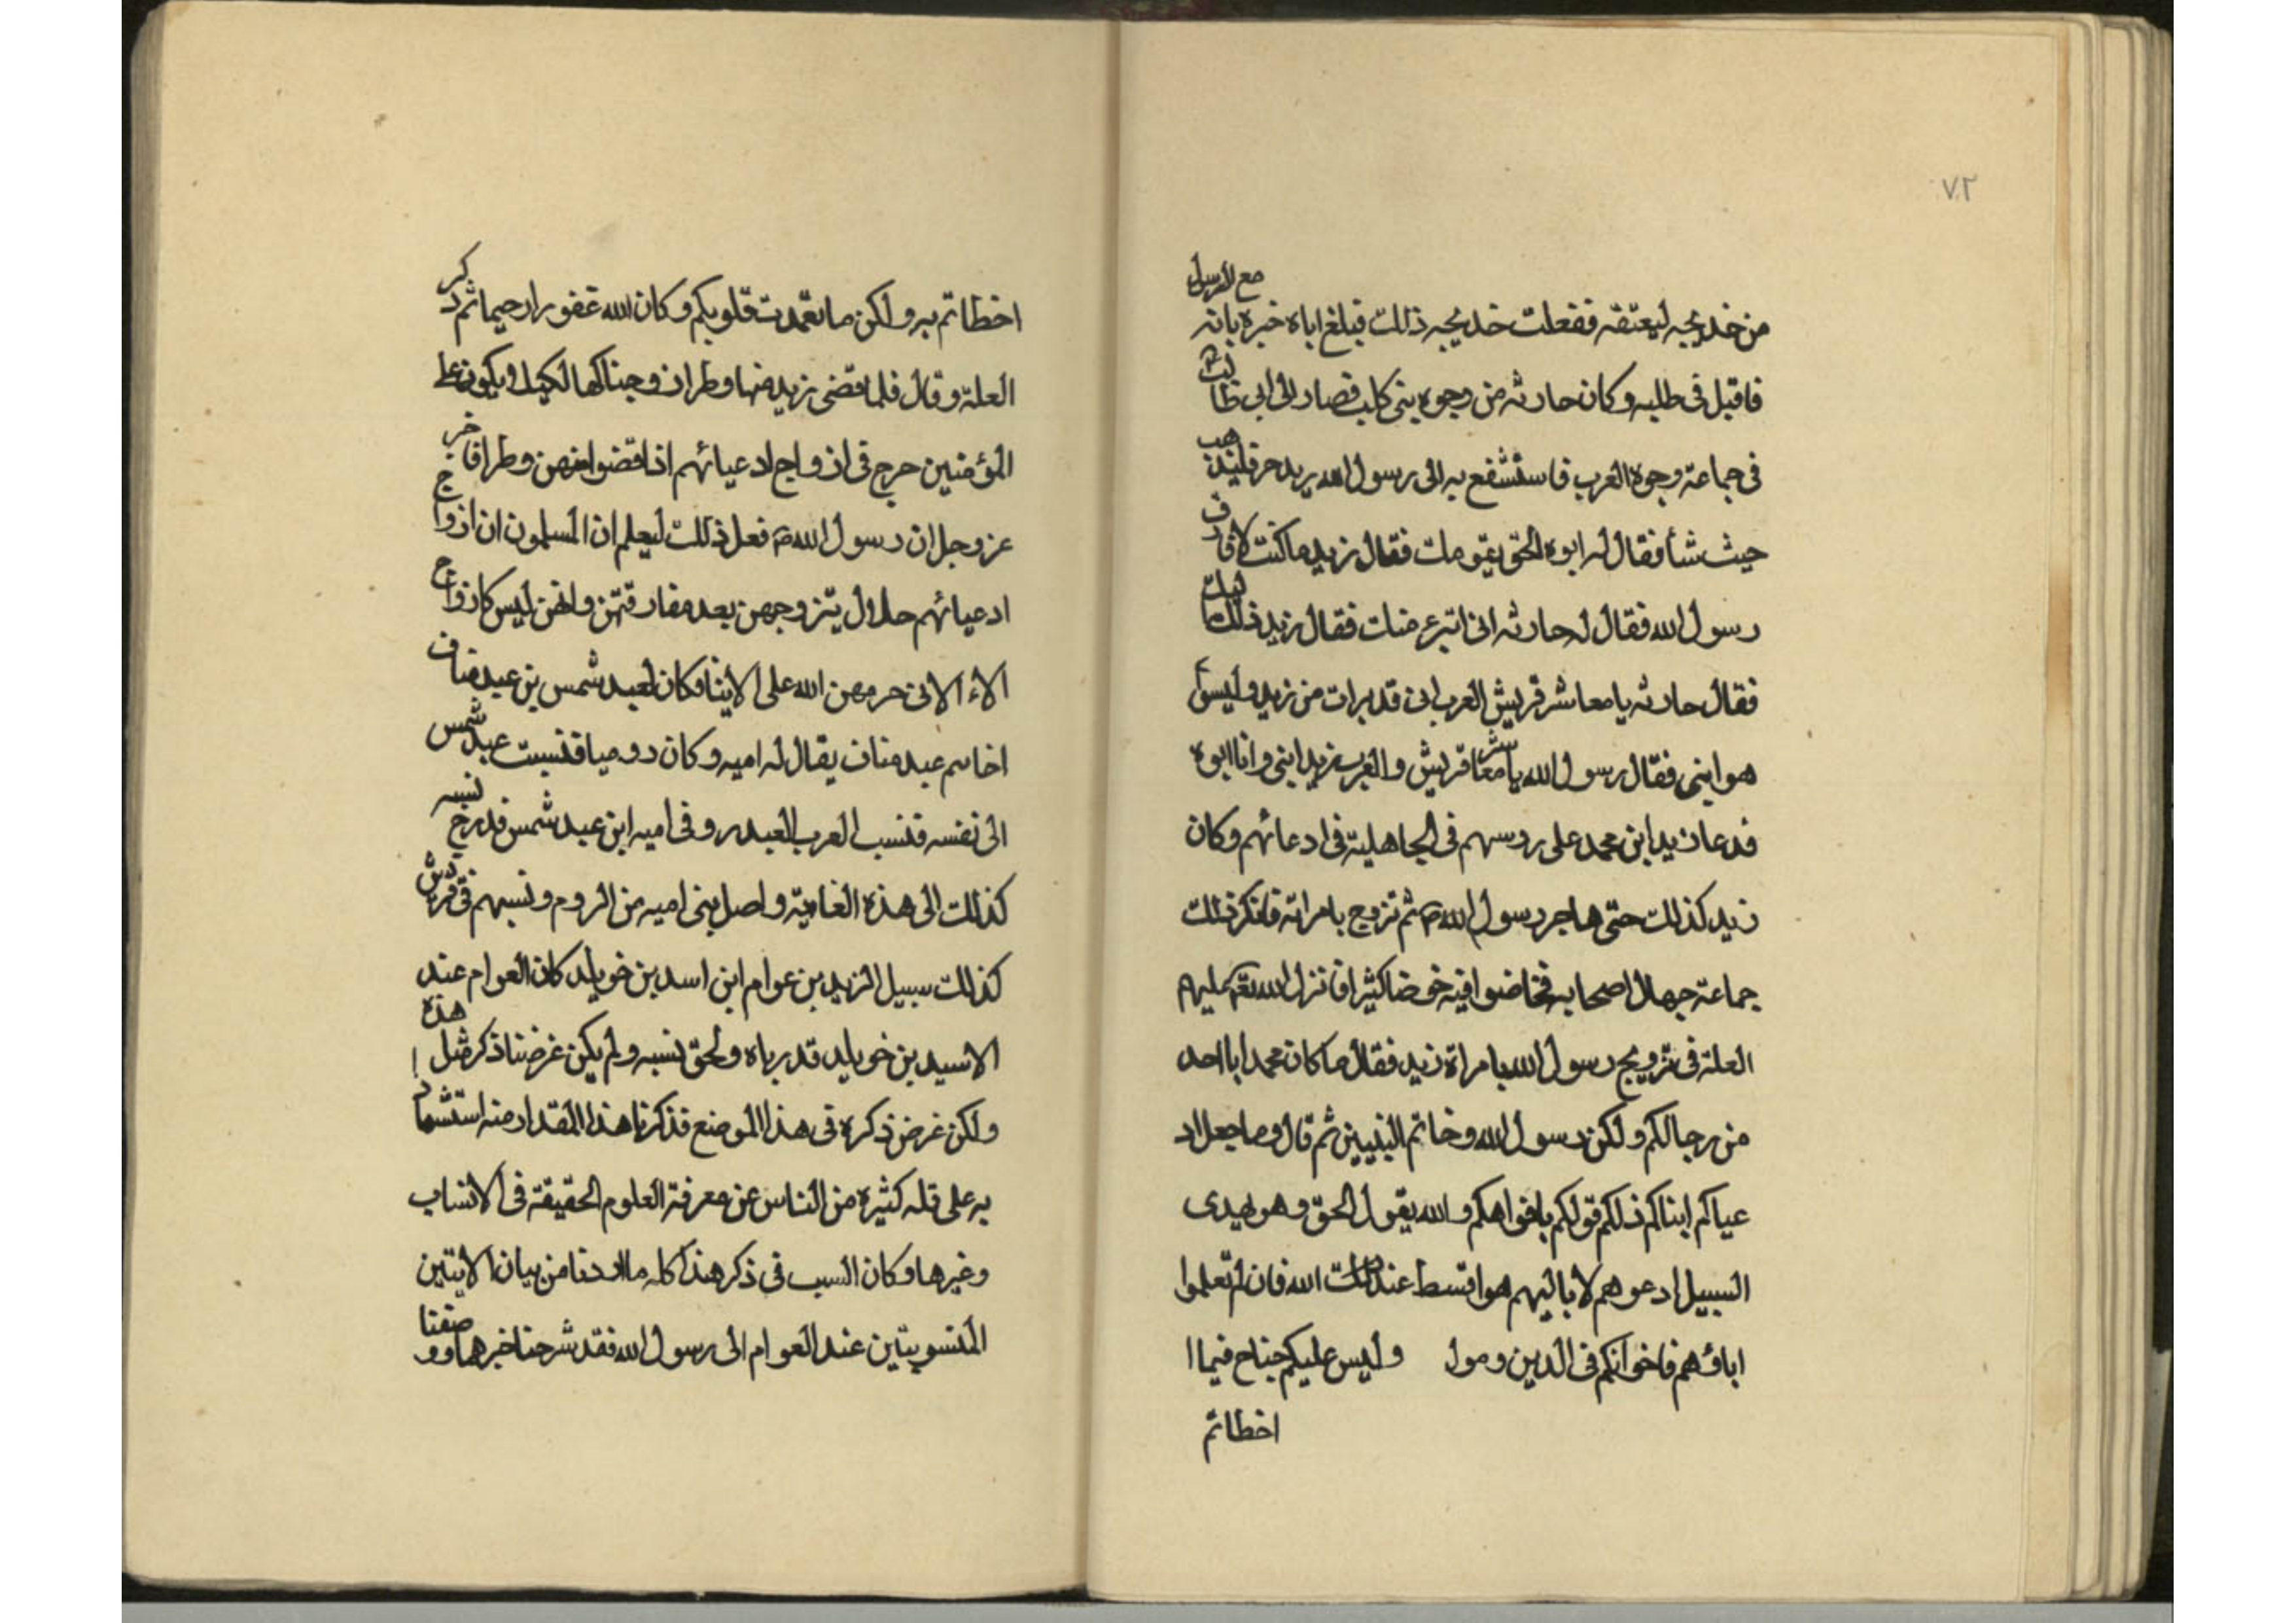 ٧٢
من خديجه ليعتقه ففعلت خديجه ذلك فبلغ اباه خبره بانه مع الرسول
فاقبل فى طلبه وكان حارثه من وجوه بنى كلب فصار الى ابى طالب
فى جماعة وجوه العرب فاستشفع به الى رسول الله يريد حر فليذهب
حيث شأ فقال له ابوه الحق بقومك فقال زيد ما كنت لافارق
رسول الله فقال له حارثه انى اتبرء منك فقال زيد ذلك اليك
فقال حارثه يا معاشر قريش العرب انى قد برات من زيد وليس
هو ابنى فقال رسول الله يا معاشر قريش والعرب زيد ابنى وانا ابوه
فدعا زيد ابن محمد على روسهم فى الجاهلية فى ادعائهم وكان
زيد كذلك حتى هاجر رسول الله ص ثم تزوج بامراته فانكر ذلك
جماعة جهال اصحابه فخاضوا فيه خوضا كثيرا فانزل الله تعم عليهم
العلة فى تزويج رسول الله بامراة زيد فقال ما كان محمد ابا احد
من رجالكم ولكن رسول الله وخاتم النبيين ثم قال وما جعل اد
عياكم ابناكم ذلكم قولكم بافواهكم والله يقول الحق وهو يهدى
السبيل ادعوهم لابائهم هو اقسط عند الله فان لم تعلموا
اباؤهم فاخوانكم فى الدين وموا وليس عليكم جناح فيما ا
اخطاتم
اخطاتم به ولكن ما تعمدت قلوبكم وكان الله غفورا رحيما ثم ذكر
العلة وقال فلما قضى زيد منها وطرا زوجناكها لكيلا يكون على
المؤمنين حرج فى ازواج ادعيائهم اذا قضوا منهن وطرا فاخبر
عز وجل ان رسول الله ص فعل ذلك ليعلم ان المسلمون ان ازواج
ادعيائهم حلال يتزوجهن بعد مفارقتهن وانهن ليس كازواج
الاء الاتى حرمهن الله على الابنا وكان لعبد شمس بن عبد مناف
اخاسم عبد مناف يقال له اميه وكان روميا فنسبت عبد شمس
الى نفسه فنسب العرب لعبد ر وفى اميه ابن عبد شمس فدرج نسبه
كذلك الى هذه الغاية واصل بنى اميه من الروم ونسبهم فى قريش
كذلك سبيل الزبير بن عوام ابن اسد بن خويلد كان العوام عند
الاسيد بن خويلد قد رباه ولحق نسبه ولم يكن غرضنا ذكر مثل هذه ا
ولكن غرض ذكره فى هذا الموضع فذكرنا هذا المقدار منه استشهاد
به على قله كثيره من الناس عن معرفة العلوم الحقيقة فى الانساب
وغيرها وكان السبب فى ذكر هذا كله ما اردنا من بيان الابنتين
المنسوبتين عند العوام الى رسول الله فقد شرحنا خبرهما ووصفنا